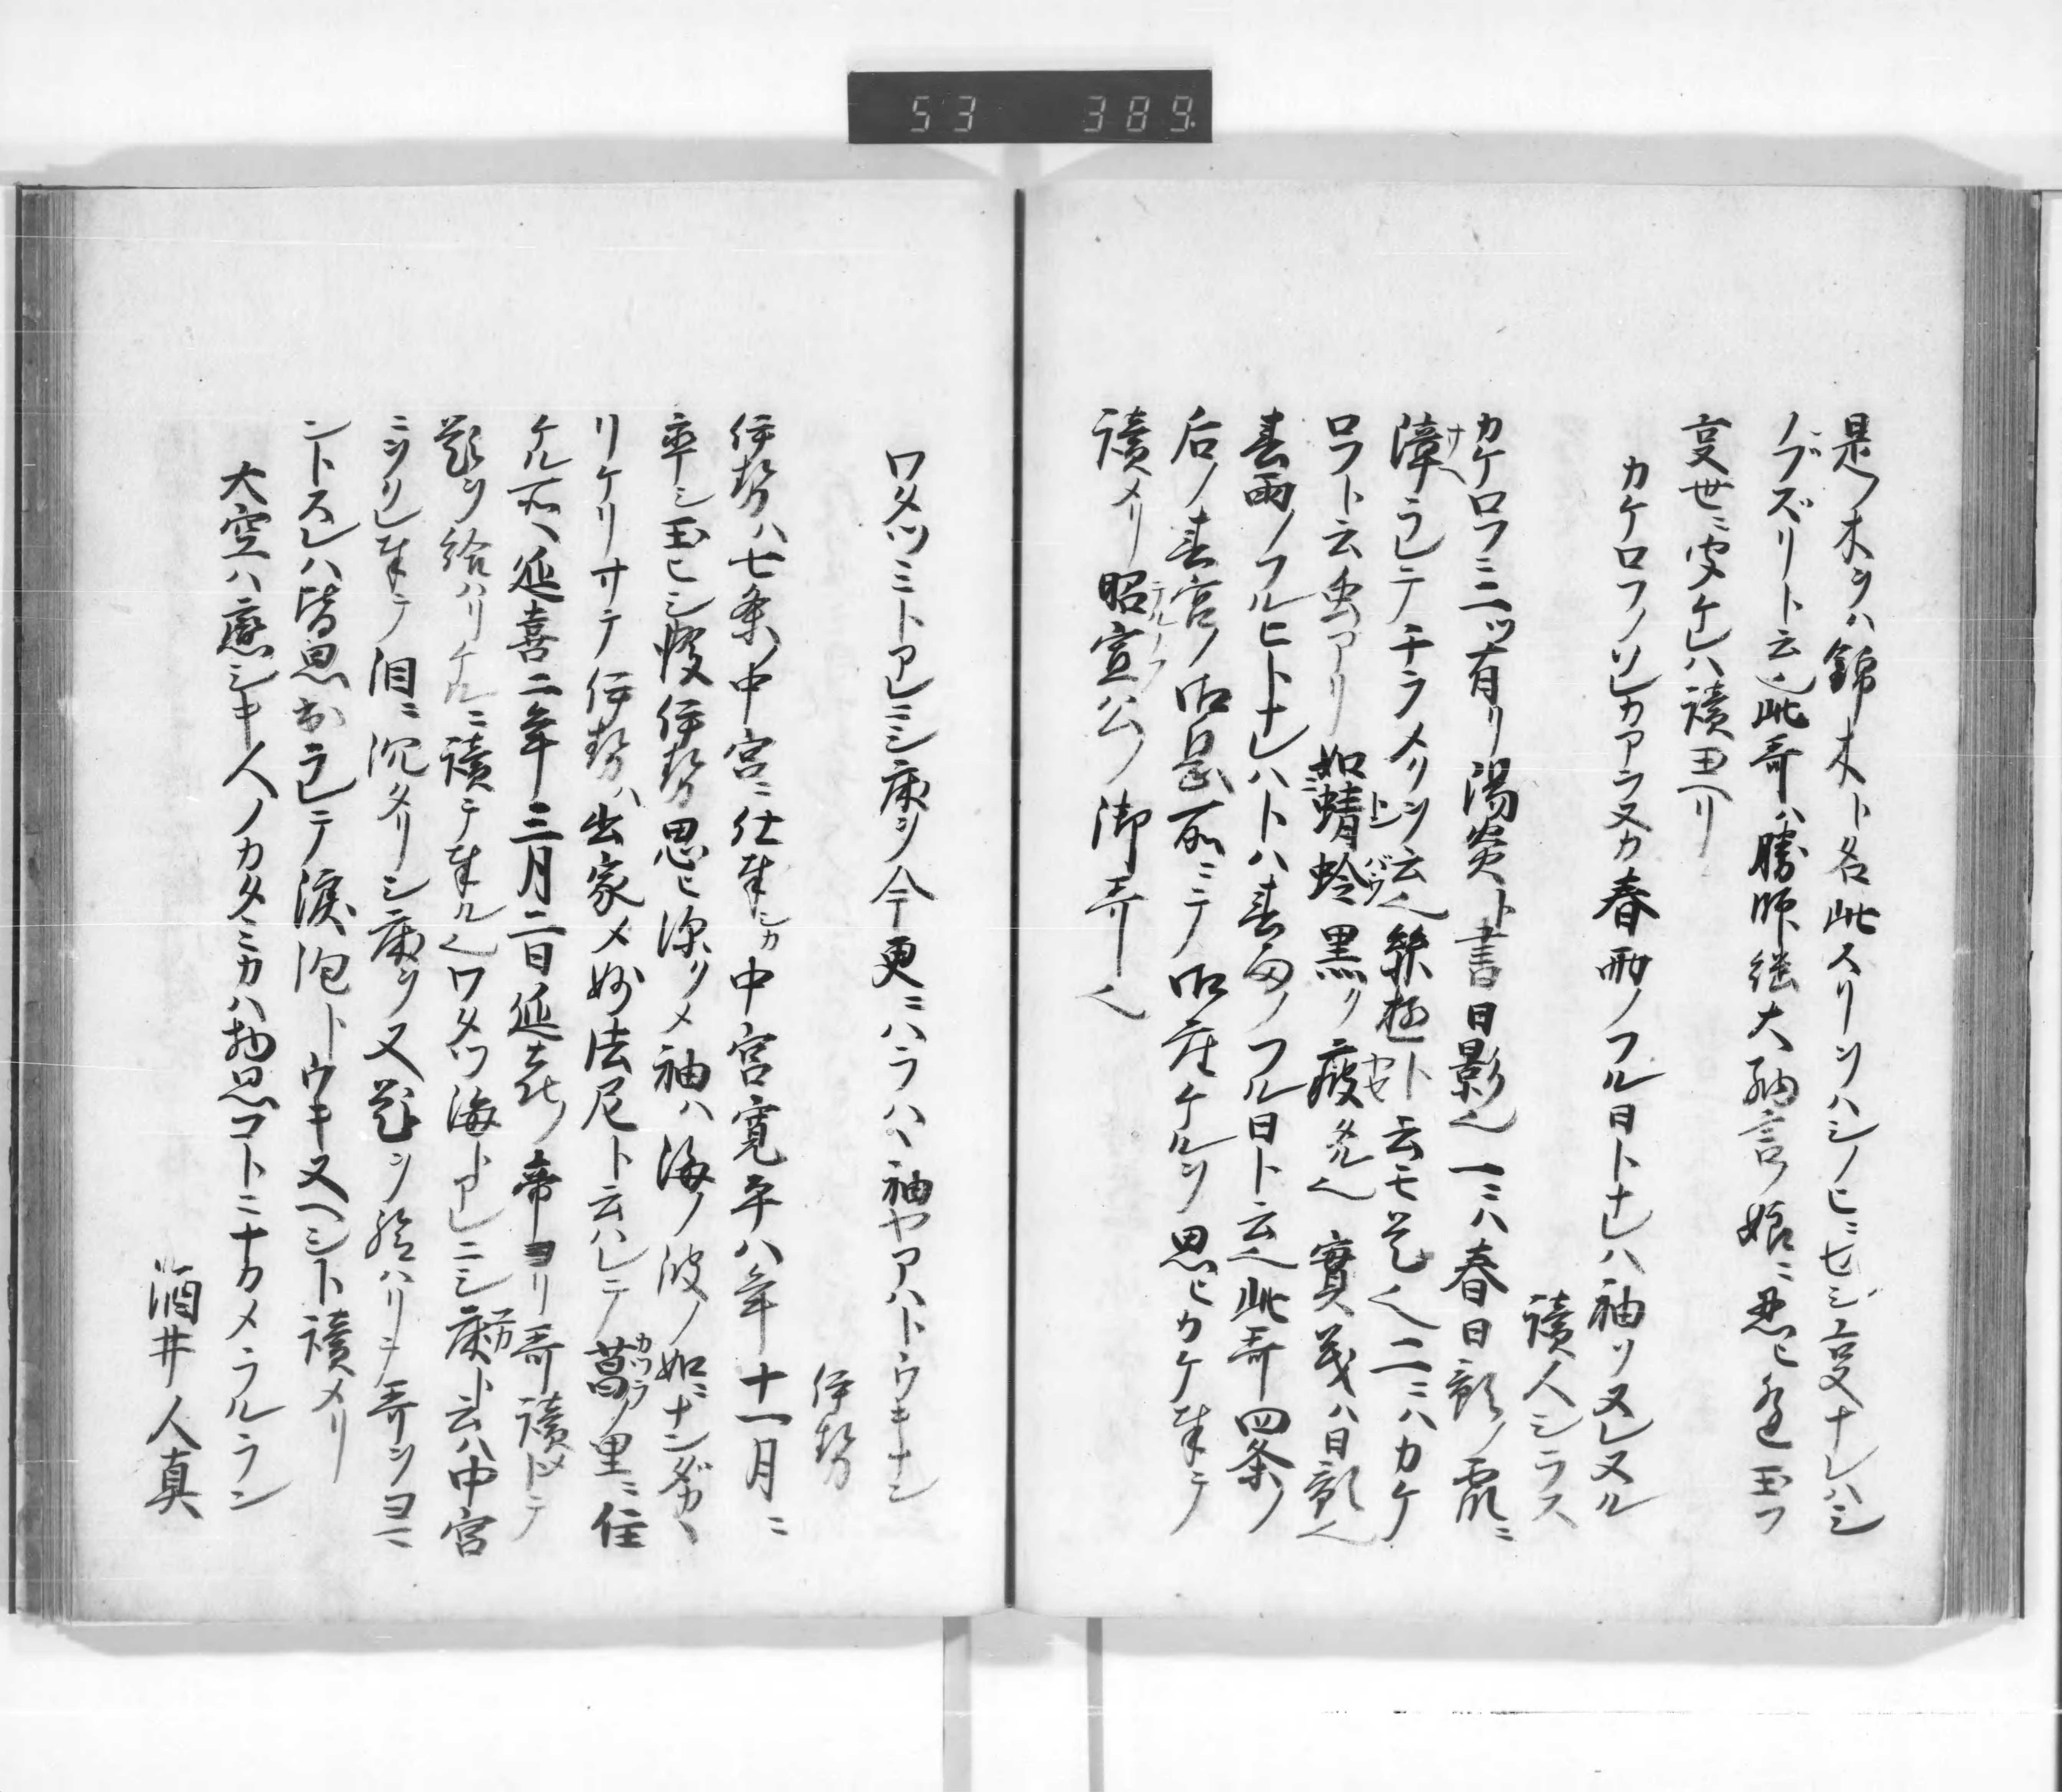 53 389
是ノ木ヲハ錦木ト名此スリヲハシノヒニセシ夏ナレハシ
ノブズリト云也此哥ハ勝師继大納言ノ娘ニ忍ヒ逢玉フ
夏世ニ变ケレハ讀玉ヘリ
カケロフノソレカアラヌカ春雨ノフル日トナレハ袖ソヌレヌル
讀人シラス
カケロフニ二ツ有リ陽炎ト書日影也一ニハ春日影ノ霞ニ
障ラレテチラメクヲ云也絲遊ト云モ是也二ニハカケ
ロフト云虫アリ如蜻蛉黒ク痩タル也實義ハ日影也
春雨ノフルヒトナレハトハ春雨ノフル日ト云也此哥四条ノ
后ノ春宮ノ御息所ニテ御座ケルヲ思ヒカケ奉テ
讀メリ昭宣公ノ御哥也
ワタツミトアレニシ床ヲ今更ニハラハヽ袖ヤアハトウキナン
伊勢
伊勢ハ七条ノ中宮ニ仕奉シカ中宮寛平八年十一月ニ
卒シ玉ヒシ後伊勢思ヒ深クメ袖ハ海ノ波ノ如ニナンダカヽ
リケリサテ伊勢ハ出家メ妙法尼ト云ハレテ葛ノ里ニ住
ケル所ヘ延喜二年三月二日延喜ノ帝ヨリ哥讀トメテ
題ヲ給ハリケルニ讀テ奉ル也ワタツ海トアレニシ床ト云ハ中宮
ニヲクレ奉テ泪ニ沉タリシ床ヲ又題ヲ給ハリテ哥ヲヨマ
ントスレハ皆思出ラレテ涙泡トウキヌヘシト讀メリ
大空ハ戀シキ人ノカタミカハ物思コトニナカメラルラン
酒井人真